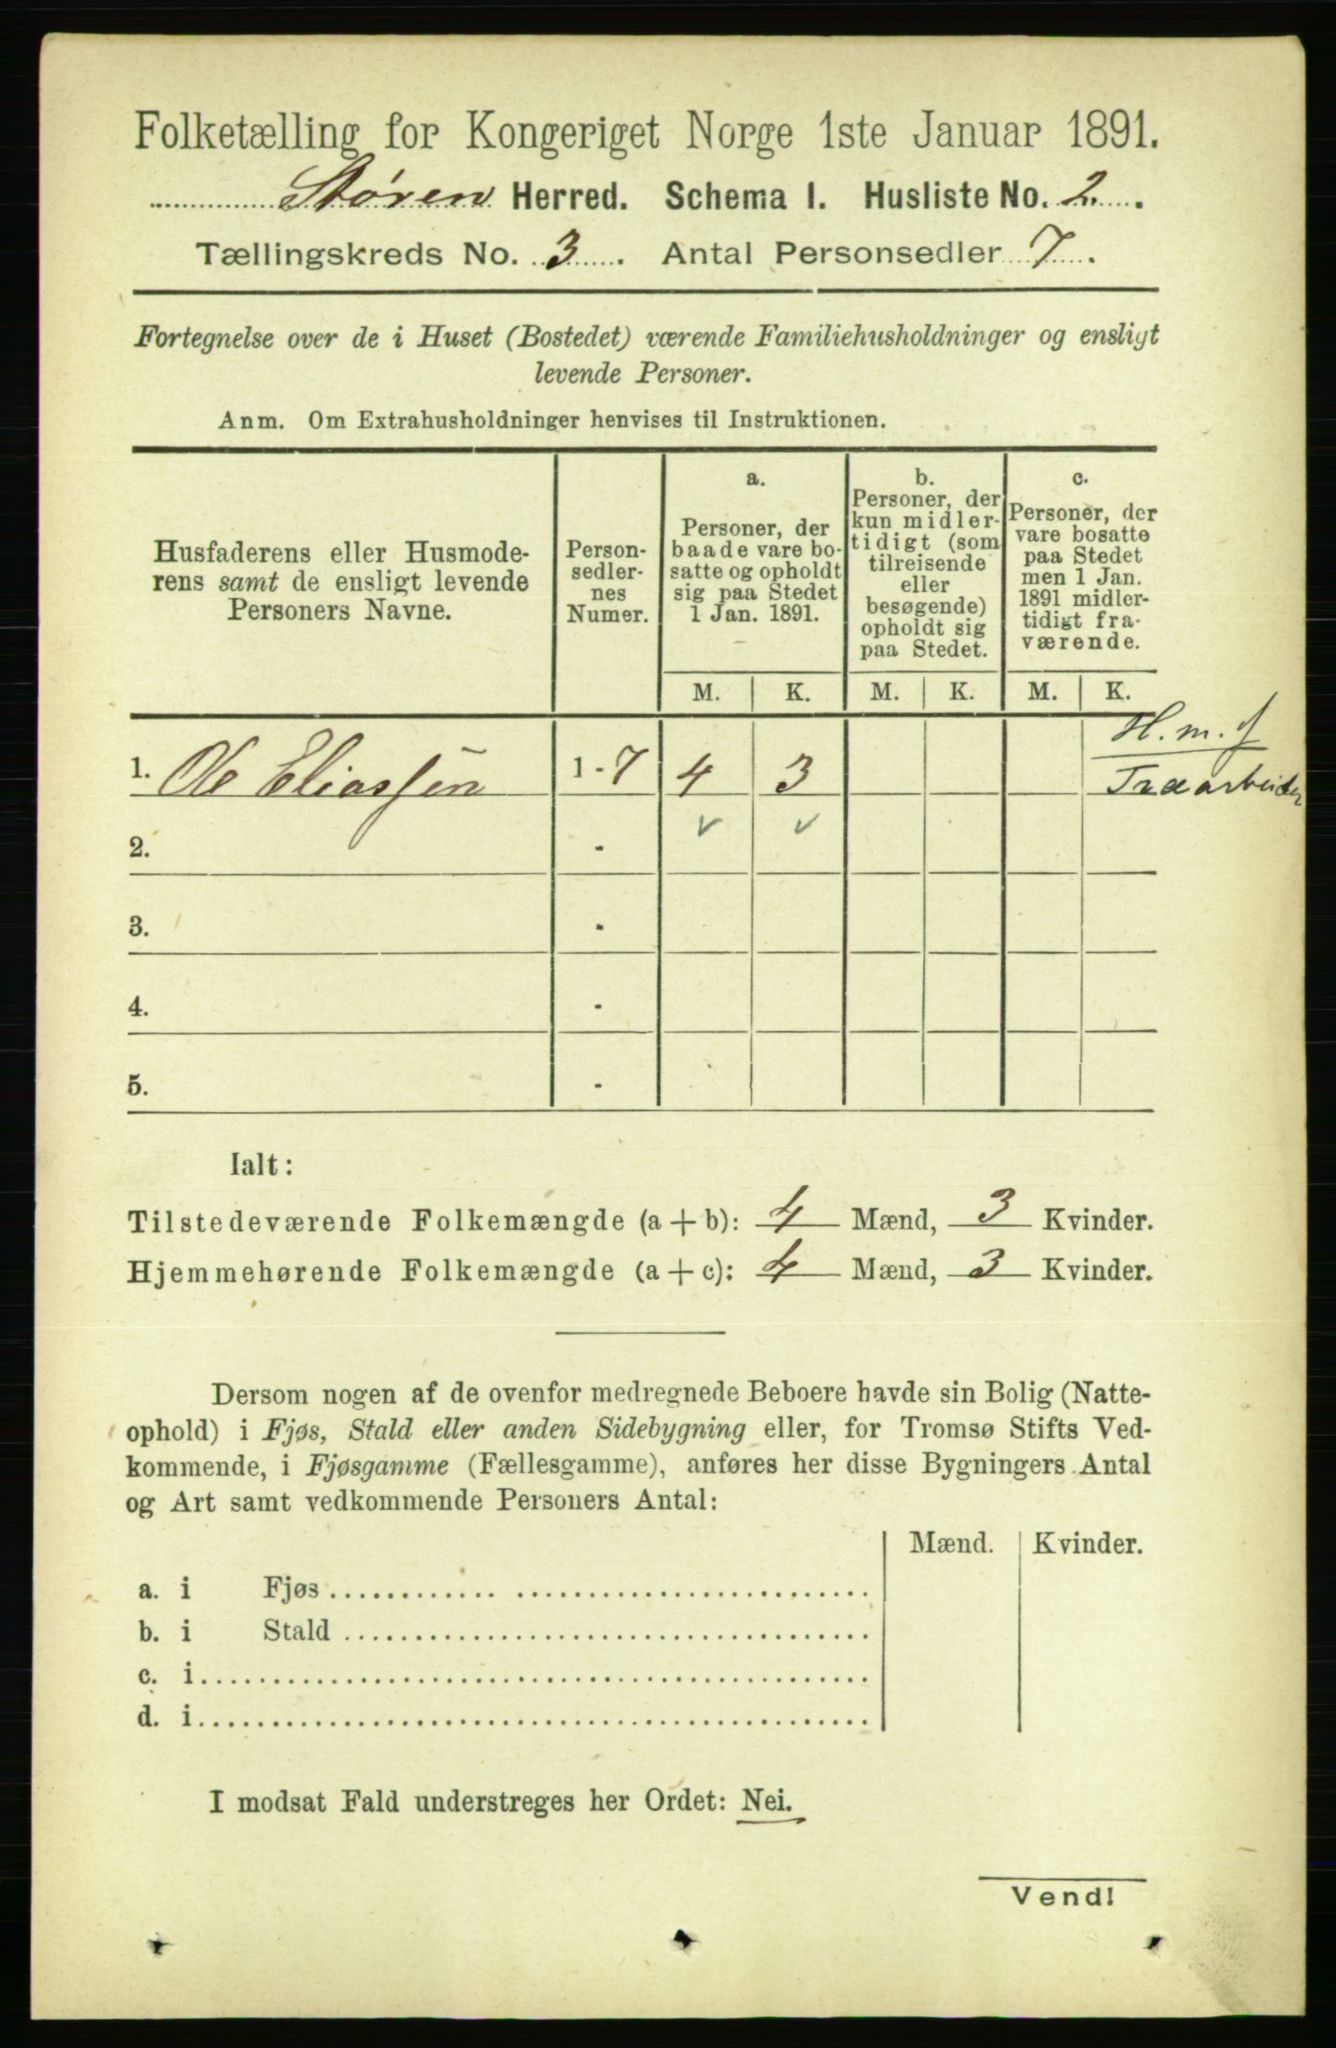 Folketælling for Kongeriget Norge 1ste Januar 1891.
Støren Herred. Schema I. Husliste No. 2.
Tællingskreds No. 3. Antal Personsedler 7.
Fortegnelse over de i Huset (Bostedet) værende Familiehusholdninger og ensligt
levende Personer.
Anm. Om Extrahusholdninger henvises til Instruktionen.
Husfaderens eller Husmode-
rens samt de ensligt levende
Personers Navne.
Person-
sedler-
nes
Numer.
a.
Personer, der
baade vare bo-
satte og opholdt
sig paa Stedet
1 Jan. 1891.
b.
Personer, der
kun midler-
tidigt (som
tilreisende
eller
besøgende)
opholdt sig
paa Stedet.
c.
Personer, der
vare bosatte
paa Stedet
men 1 Jan.
1891 midler-
tidigt fra-
værende.
M. K. M. K. M. K.
H. m. f
1. Ole Eliassen 1 - 7 4 3 Træarbeider
2. - ✓ ✓
3. -
4. -
5. -
Ialt:
Tilstedeværende Folkemængde (a + b): 4 Mænd, 3 Kvinder.
Hjemmehørende Folkemængde (a + c): 4 Mænd, 3 Kvinder.
Dersom nogen af de ovenfor medregnede Beboere havde sin Bolig (Natte-
ophold) i Fjøs, Stald eller anden Sidebygning eller, for Tromsø Stifts Ved-
kommende, i Fjøsgamme (Fællesgamme), anføres her disse Bygningers Antal
og Art samt vedkommende Personers Antal:
Mænd. Kvinder.
a. i Fjøs
b. i Stald
c. i
d. i
I modsat Fald understreges her Ordet: Nei.
Vend!